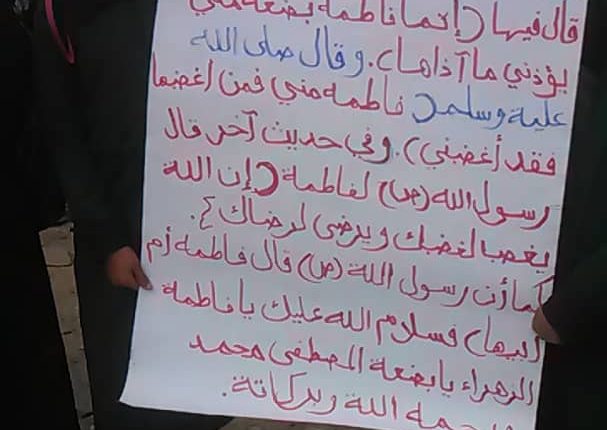 قال فيها (إنما فاطمة بضعة مني
يؤذني ما آذاها). وقال صلى الله
علية وسلم (فاطمه مني فمن أغضبها
فقد أغضبني). وفي حديث آخر قال
رسول الله (ص) لفاطمة (إن الله
يغصب لغضبك ويرضى لرضاك).
كما أن رسول اللة (ص) قال فاطمه أم
أبيها) فسلام الله عليك يا فاطمة
الزهراء يا بضعة المصطفى محمد
ورحمه اللة وبركاتة.